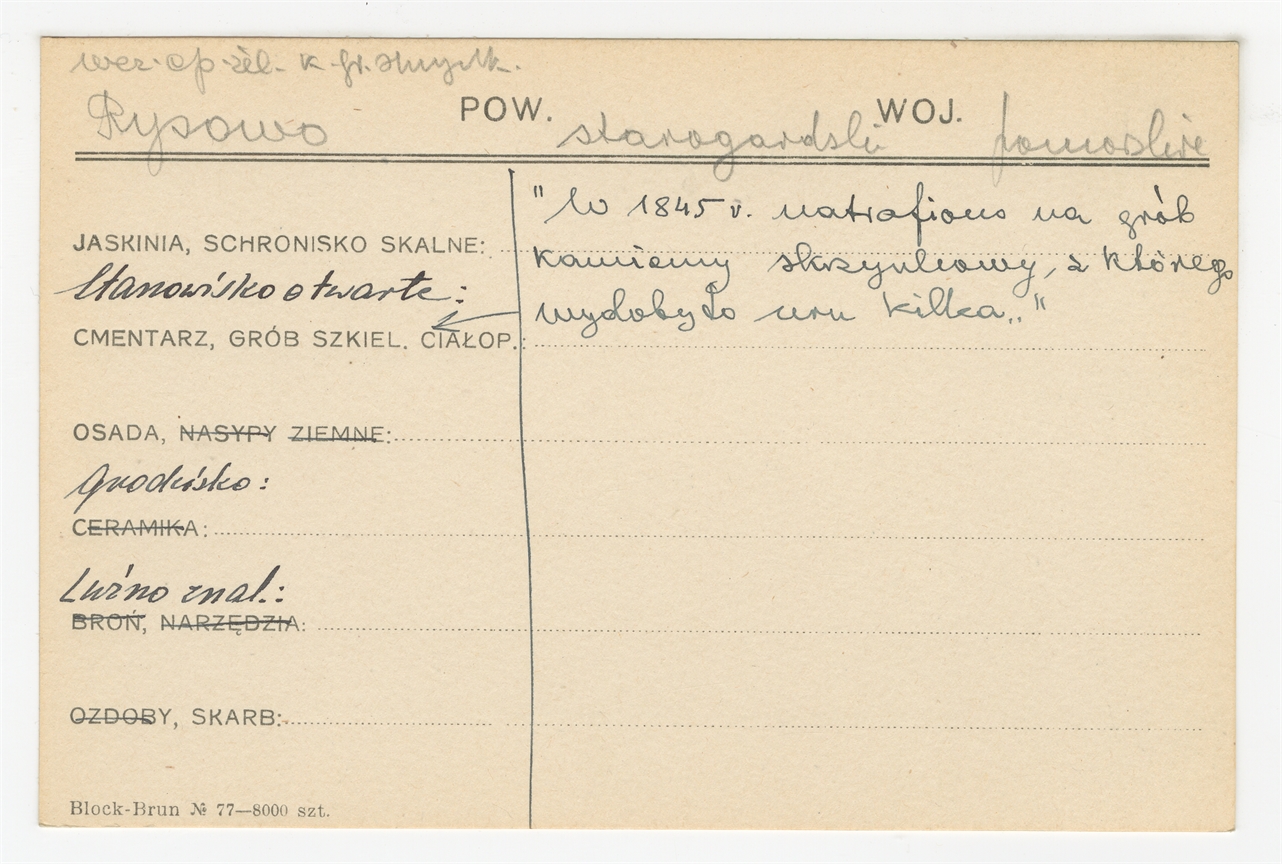 wcz. ep. żel. k. gr. skrzynk.
Rysowo POW. starogardski WOJ. pomorskie
"W 1845 r. natrafiono na grób
JASKINIA, SCHRONISKO SKALNE:
kamienny skrzynkowy, z którego
Stanowisko otwarte:
wydobyto urn kilka.."
CMENTARZ, GRÓB SZKIEL. CIAŁOP.:
OSADA, NASYPY ZIEMNE:
Grodzisko:
CERAMIKA:
Luźno znal.:
BROŃ, NARZĘDZIA:
OZDOBY, SKARB:
Block-Brun № 77—8000 szt.